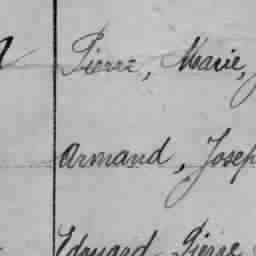 Pierre, Marie,
Armand, Josep
Edouard, Pierre